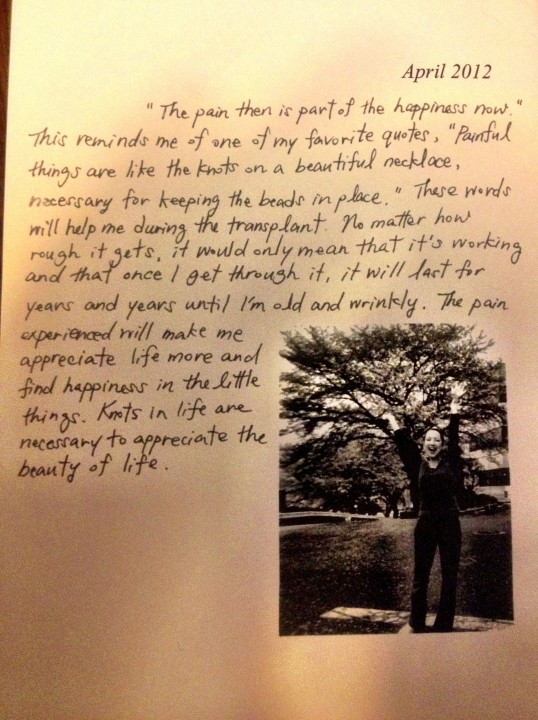 April 2012
"The pain then is part of the happiness now."
This reminds me of one of my favorite quotes, "Painful
things are like the knots on a beautiful necklace,
necessary for keeping the beads in place." These words
will help me during the transplant. No matter how
rough it gets, it would only mean that it's working
and that once I get through it, it will last for
years and years until I'm old and wrinkly. The pain
experienced will make me
appreciate life more and
find happiness in the little
things. Knots in life are
necessary to appreciate the
beauty of life.